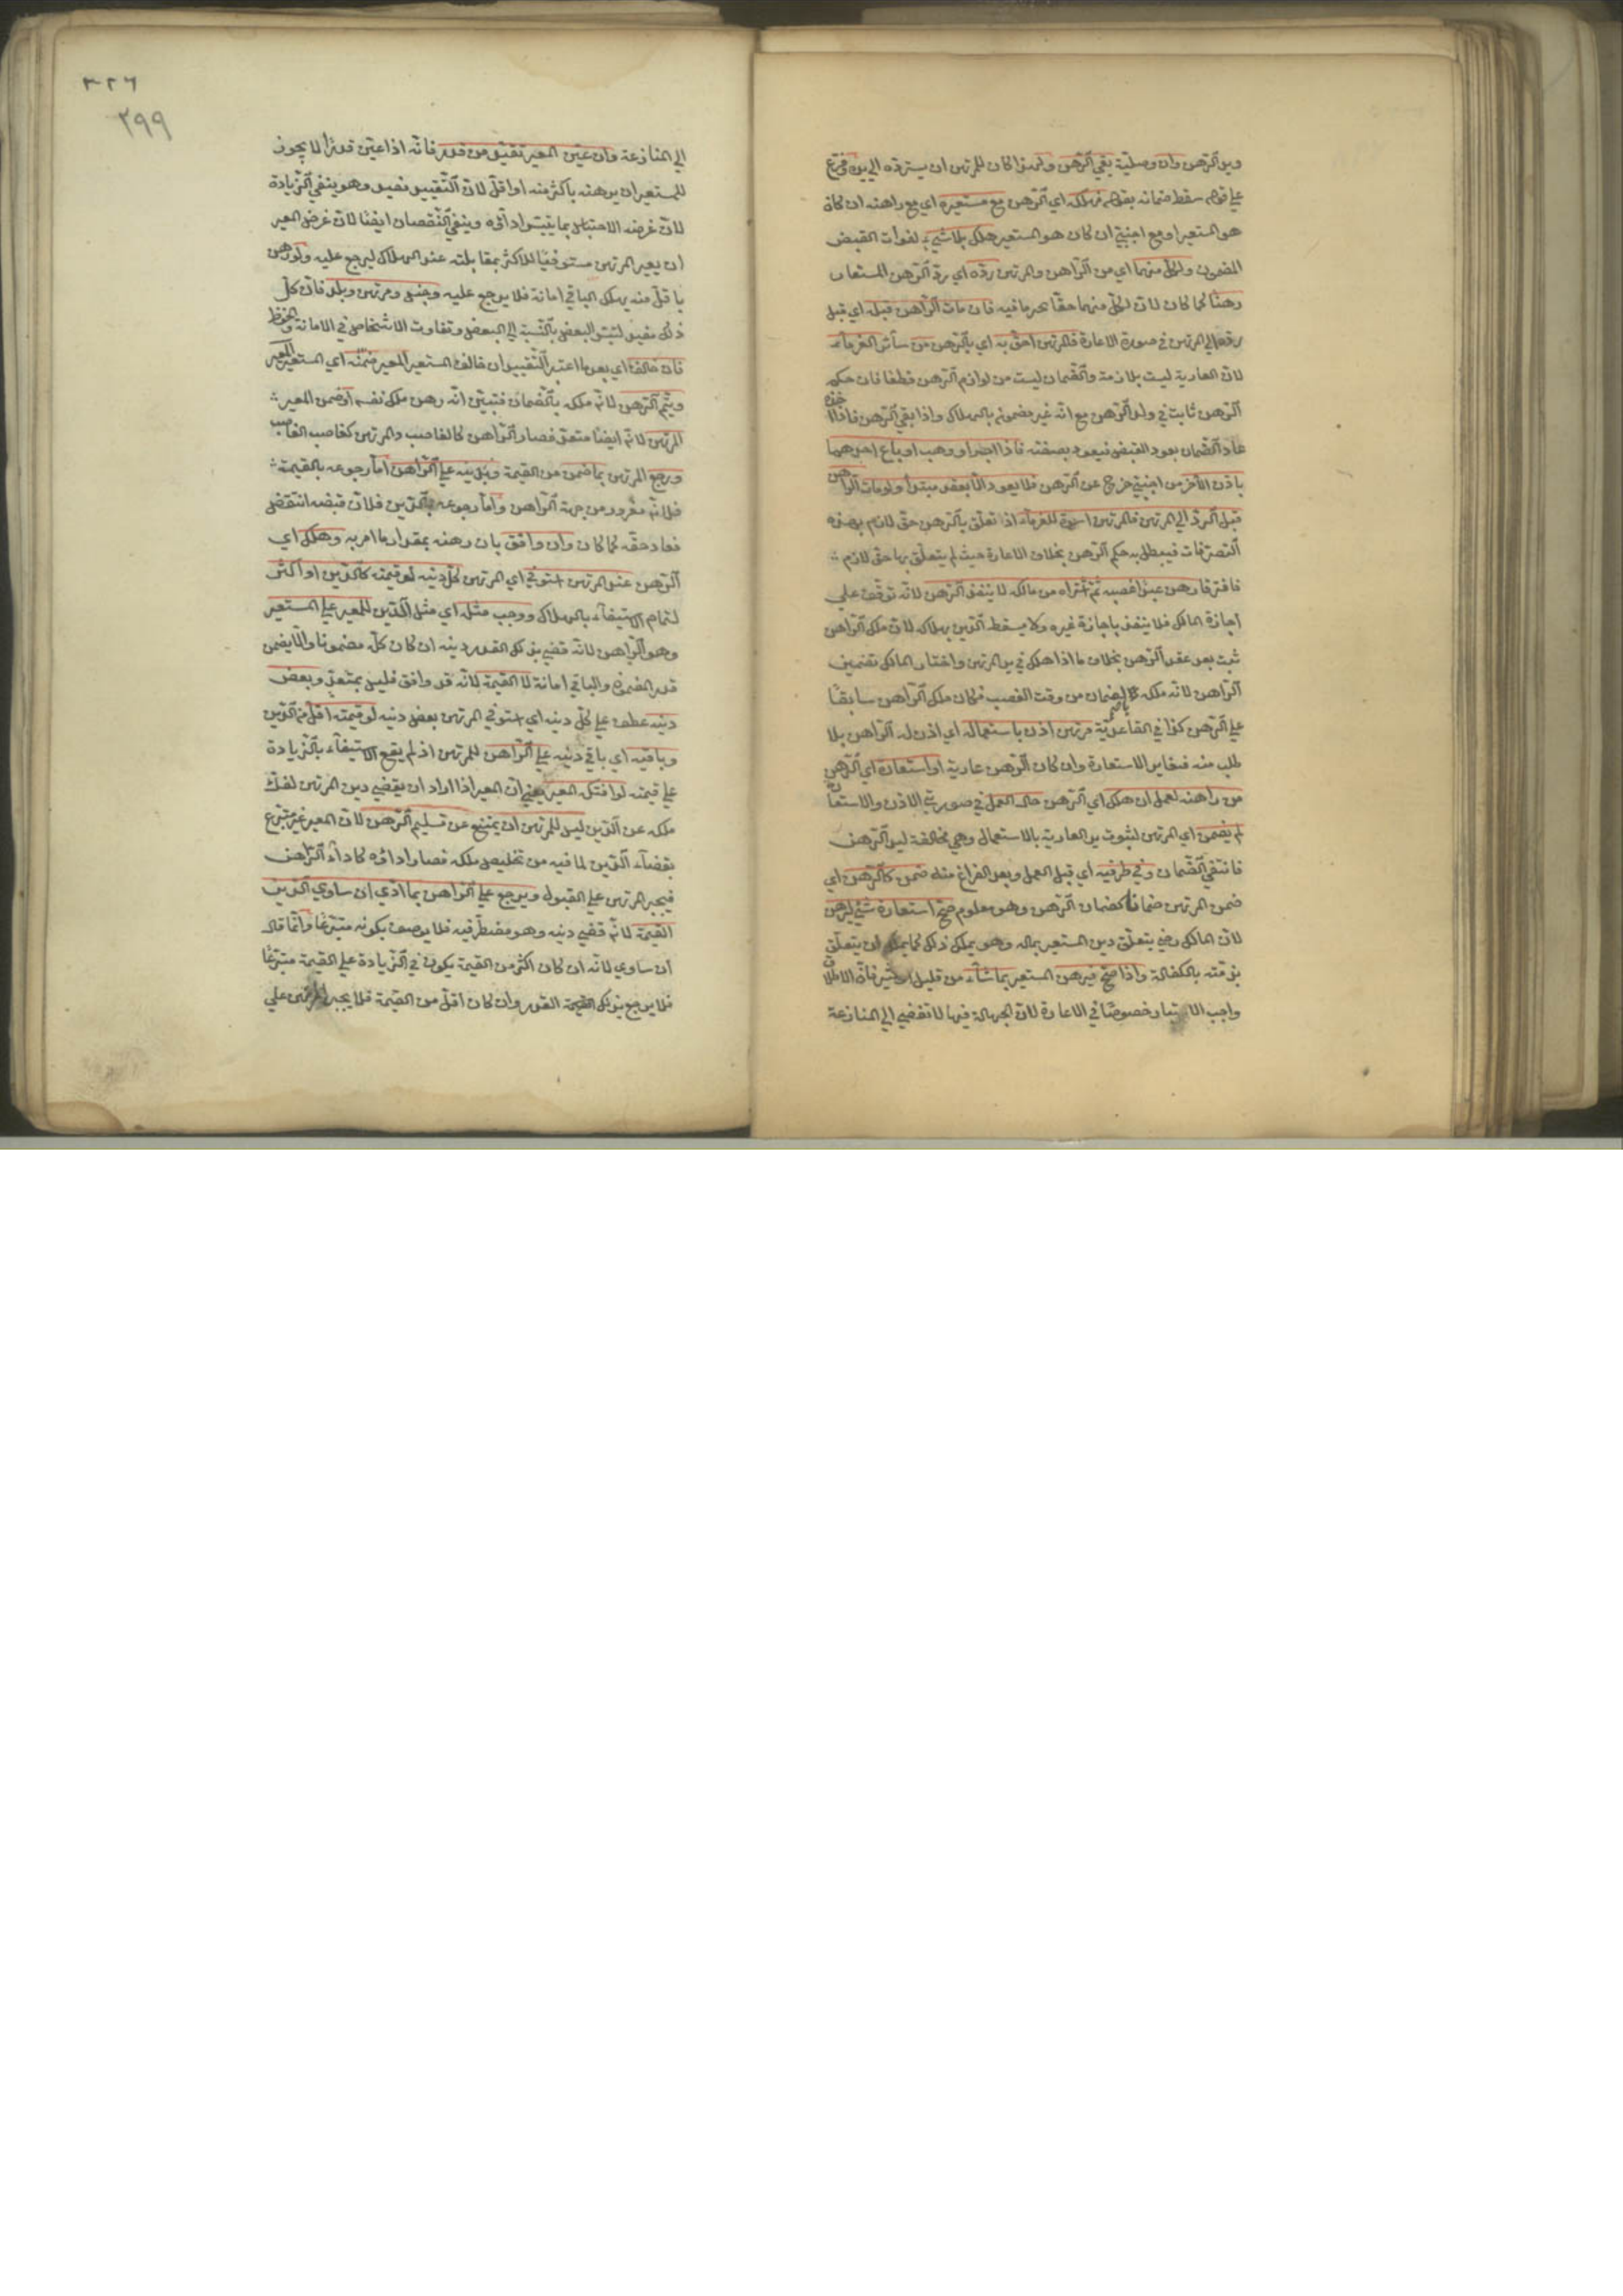 ويد الرهن وان وصلية بقي الرهن ولهذا كان للمرتهن ان يسترده الى يده وفرع
على قوله سقط ضمانه بقوله فهلكه اي الرهن مع مستعيره اي مع راهنه ان كان
هو المستعير او مع اجنبي ان كان هو المستعير هلك بلا شيء لفوات القبض
المضمون ولكل منهما اي من الراهن والمرتهن رده اي رد الرهن المستعار
رهنا كما كان لان لكل منهما حقا محرما فيه فان مات الراهن قبله اي قبل
رده الى المرتهن في صورة الاعارة فالمرتهن احق به اي بالرهن من سائر الغرماء
لان العارية ليست بلازمة والضمان ليست من لوازم الرهن قطعا فان حكم
الرهن ثابت في ولد الرهن مع انه غير مضمون بالهلاك واذا بقي الرهن فاذا اخذه
عاد الضمان بعود القبض فيعود بصفته فاذا اجر او وهب او باع احدهما
باذن الآخر من اجنبي خرج عن الرهن فلا يعود الا بعقد مبتدأ ولو مات الراهن
قبل الرد الى المرتهن فالمرتهن اسوة للغرماء اذا تعلق بالرهن حق لازم بهذه
التصرفات فيبطل به حكم الرهن بخلاف الاعارة حيث لم يتعلق بها حق لازم
فافترقا رهن عبدا غصبه ثم اشتراه من مالكه لا ينفذ الرهن لانه توقف على
اجازة المالك فلا ينفذ باجازة غيره ولا يسقط الدين بهلاكه لان ملك الراهن
ثبت بعد عقد الرهن بخلاف ما اذا هلك في يد المرتهن واختار المالك تضمين
الراهن لانه ملكه بالضمان من وقت الغصب فكان ملك الراهن سابقا
على الرهن كذا في القاعدية مرتهن اذن باستعماله اي اذن له الراهن بلا
طلب منه فيغاير الاستعارة وان كان الرهن عارية او استعارة اي الرهن
من راهنه لعمل ان هلك اي الرهن حال العمل في صورتي الاذن والاستعارة
لم يضمن اي المرتهن لثبوت يد العارية بالاستعمال وهي مخالفة ليد الرهن
فانتفى الضمان وفي طرفيه اي قبل العمل وبعد الفراغ منه ضمن كالرهن اي
ضمن المرتهن ضمانا كضمان الرهن وهو معلوم صح استعارة شيء ليرهن
لان المالك رضي بتعلق دين المستعير بماله وهو يملك ذلك كما يملك ان يتعلق
بذمته بالكفالة واذا صح فيرهن المستعير بما شاء من قليل او كثير فان الاطلاق
واجب الاعتبار خصوصا في الاعارة لان الجهالة فيها لا تفضي الى المنازعة
٣٢٦
٢٩٩
الى المنازعة وان عين المعير تقيد من قدر فانه اذا عين قدرا لا يجوز
للمستعير ان يرهنه باكثر منه او اقل لان التقييد مفيد وهو ينفي الزيادة
لان غرضه الاحتباس بما يتيسر اداؤه وينفي النقصان ايضا لان غرض المعير
ان يصير المرتهن مستوفيا للاكثر بمقابلته عند الهلاك ليرجع عليه ولو رهن
باقل منه يهلك الباقي امانة فلا يرجع عليه وجنس ومرتهن وبلد فان كل
ذلك مفيد لتيسر البعض بالنسبة الى البعض وتفاوت الاشخاص في الامانة والحفظ
فان خالف اي بعد ما اعتبر التقييد ان خالف المستعير المعير ضمنه اي المستعير المعير
ويتم الرهن لانه ملكه بالضمان فتبين انه رهن ملك نفسه او ضمن المعير
المرتهن لانه ايضا متعد فصار الراهن كالغاصب والمرتهن كغاصب الغاصب
ورجع المرتهن بما ضمن من القيمة وبدينه على الراهن اما رجوعه بالقيمة
فلانه مغرور من جهة الراهن واما رجوعه بالدين فلان قبضه انتقض
فعاد حقه كما كان وان وافق بان رهنه بمقدار ما امر به وهلك اي
الرهن عند المرتهن استوفى اي المرتهن كل دينه لو قيمته كالدين او اكثر
لتمام الاستيفاء بالهلاك ووجب مثله اي مثل الدين للمعير على المستعير
وهو الراهن لانه قضى بذلك القدر دينه ان كان كله مضمونا والا يضمن
قدر المضمون والباقي امانة لا القيمة لانه قد وافق فليس بمتعد وبعض
دينه عطف على كل دينه اي استوفى المرتهن بعض دينه لو قيمته اقل من الدين
وباقيه اي باقي دينه على الراهن للمرتهن اذ لم يقع الاستيفاء بالزيادة
على قيمته لو افتكه المعير يعني ان المعير اذا اراد ان يقضي دين المرتهن لفك
ملكه عن الدين ليس للمرتهن ان يمتنع عن تسليم الرهن لان المعير غير متبرع
بقضاء الدين لما فيه من تخليص ملكه فصار اداؤه كاداء الراهن
فيجبر المرتهن على القبول ويرجع على الراهن بما ادى ان ساوى الدين
القيمة لانه قضى دينه وهو مضطر فيه فلا يوصف بكونه متبرعا وانما قال
ان ساوى لانه ان كان اكثر من القيمة يكون في الزيادة على القيمة متبرعا
فلا يرجع بذلك القدر وان كان اقل من القيمة فلا يجبر المرتهن على